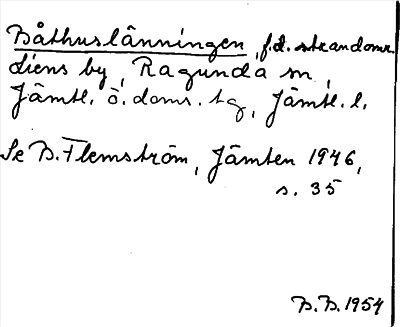 Båthuslänningen, f.d. strandomr.
Liens by, Ragunda sn,
Jämtl. ö. doms. tg, Jämtl. l.
Se B. Flemström, Jämten 1946,
s. 35
B.B. 1954